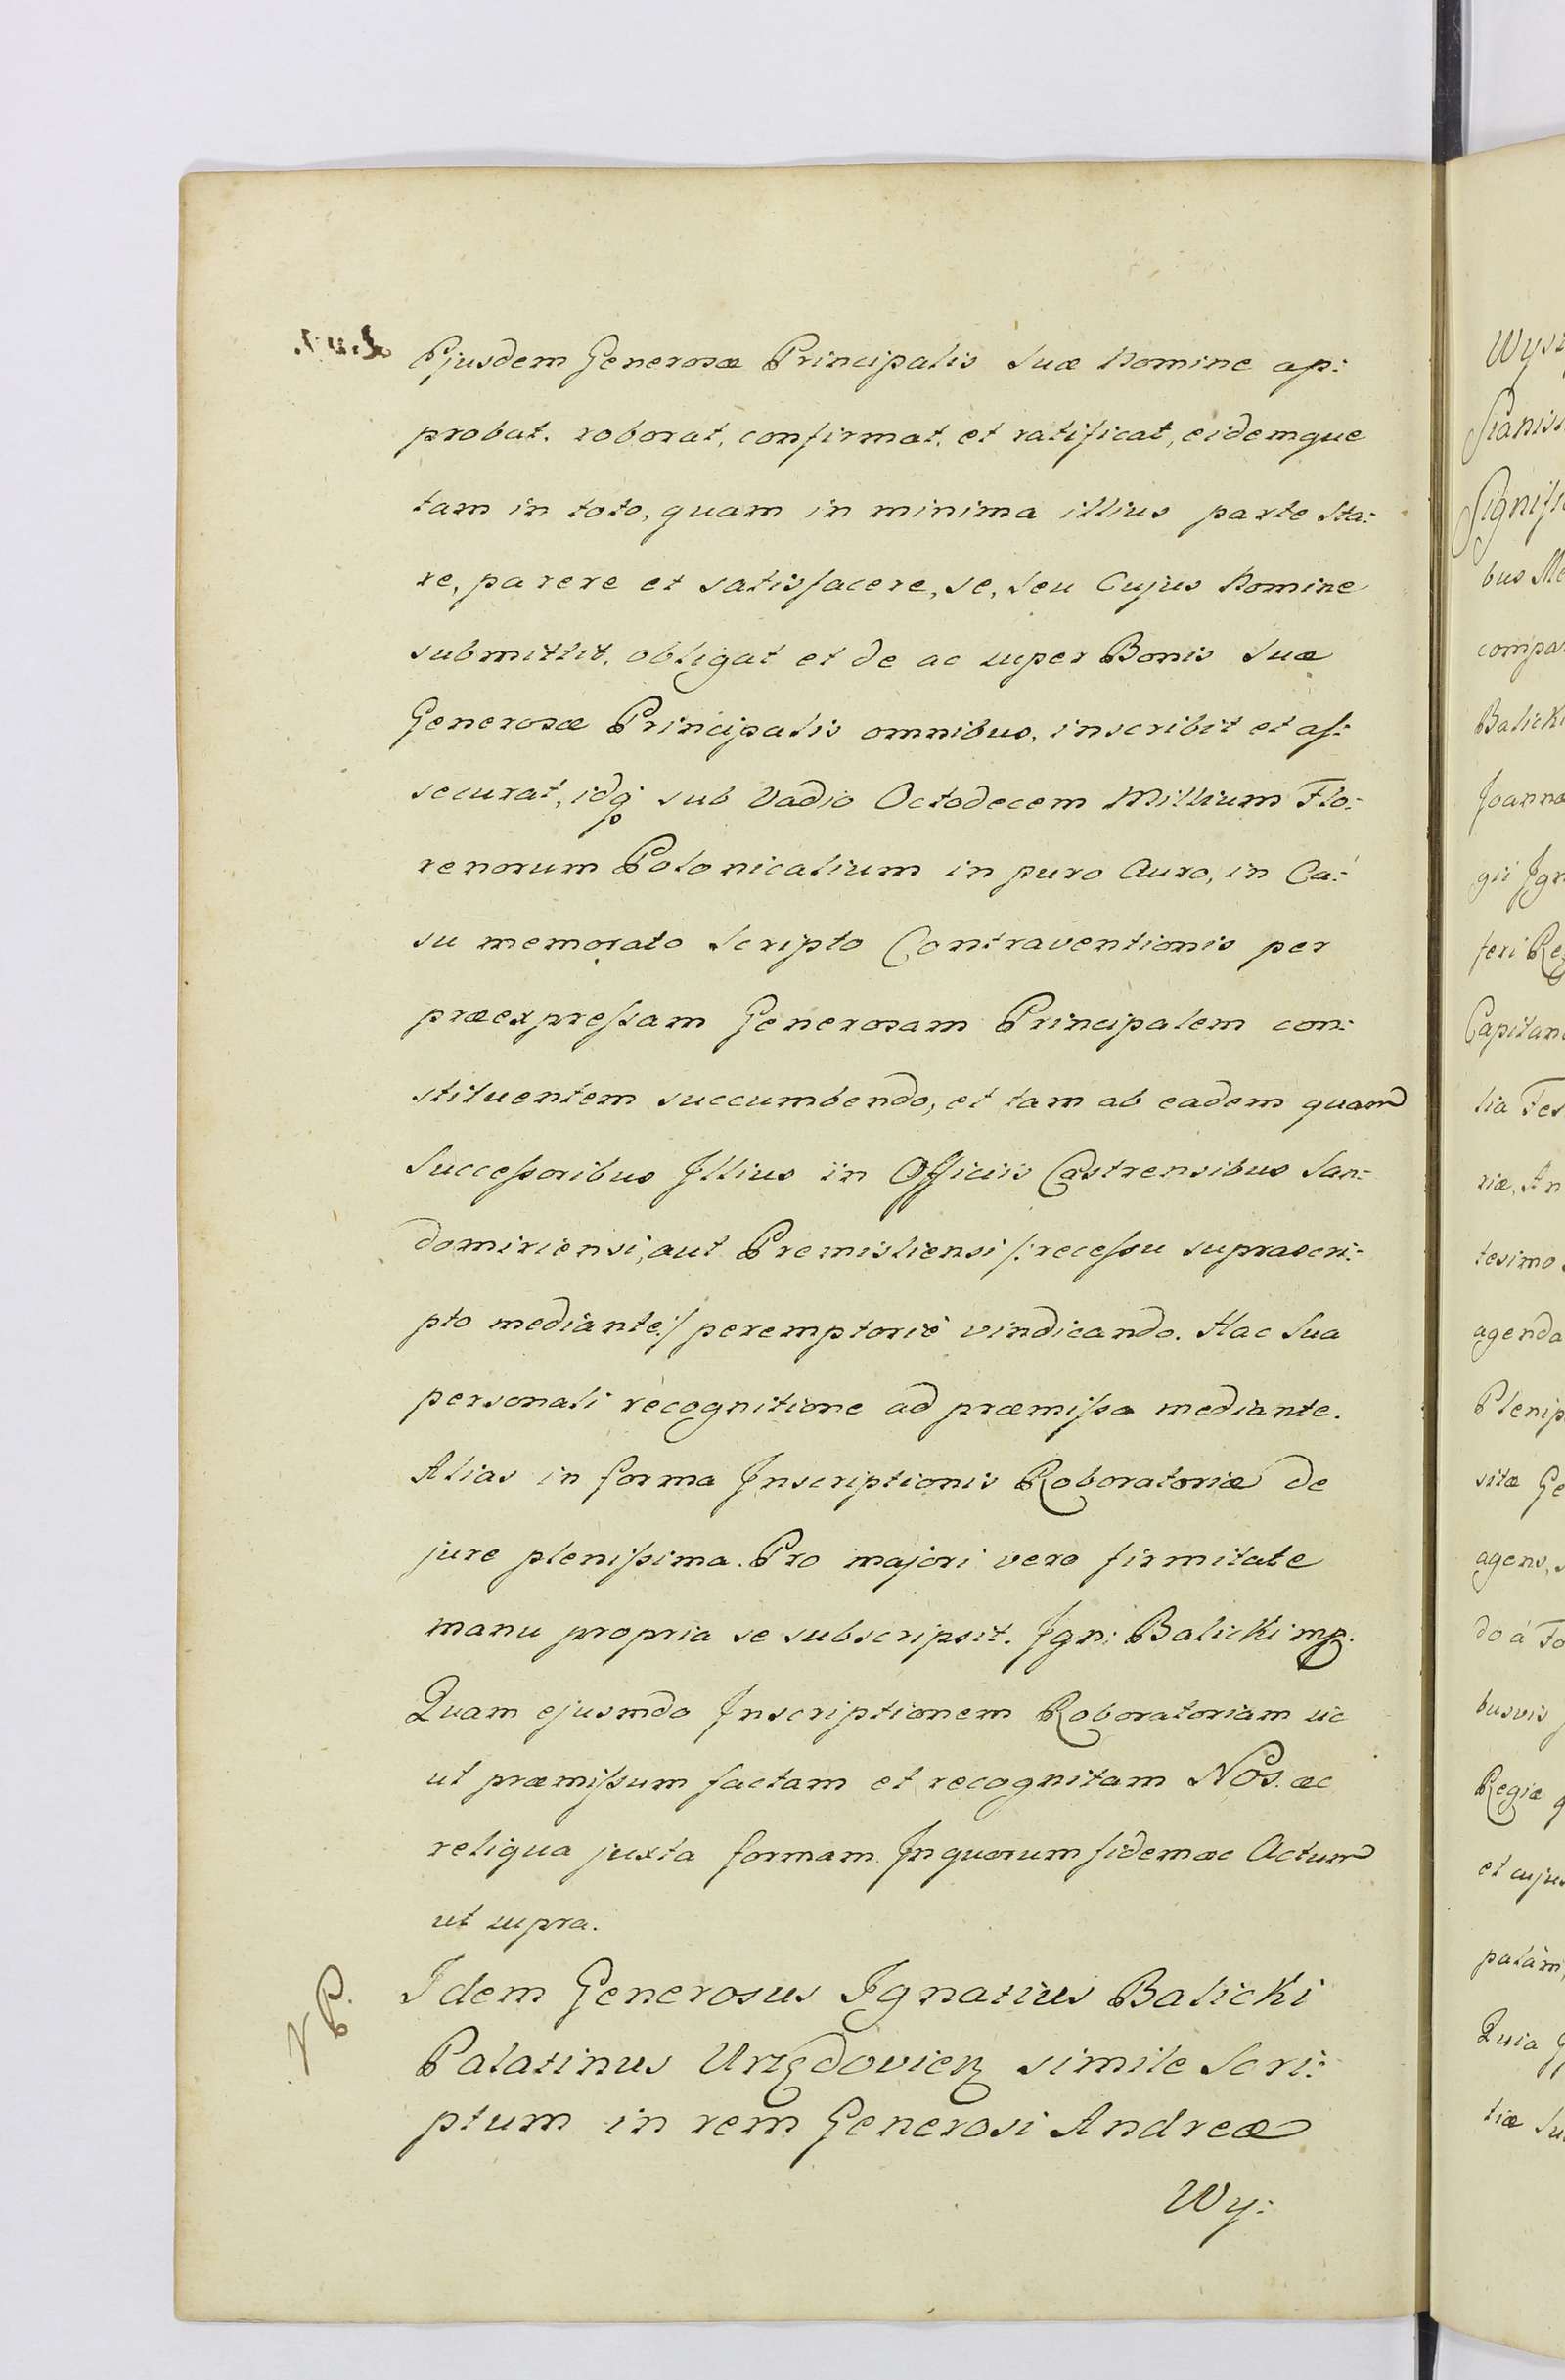 Ejusdem Generosæ Principalis Suæ Nomine ap:
probat. roborat, confirmat, et ratificat, eidemque
tam in toto, quam in minima illius parte Sta:
re, parere et satisfacere, se, seu Cujus Nomine
submittit, obligat et de ac super Bonis Suæ
Generosæ Principalis omnibus, inscribit et aſ:
securat, idq́ꝫ sub Vadio Octodecem Millium Flo:
renorum Polonicalium in puro Auro, in Ca:
su memorato Scripto Contraventionis per
præexpreſsam Generosam Principalem con:
stituentem succumbendo, et tam ab eadem quam
Succeſsoribus Illius in Officiis Castrensibus San:
domiriensi, aut Premisliensi /: receſsu suprascri:
pto mediante :/ peremptoriè vindicando. Hac Sua
personali recognitione ad præmiſsa mediante.
Alias in forma Inscriptionis Roboratoriæ de
jure pleniſsima. Pro majori vero firmitate
manu propria se subscripsit. Ign: Balicki mp.
Quam ejusmdo Inscriptionem Roboratoriam uc
ut præmiſsum factam et recognitam NOS. ac
reliqua juxta formam. In quorum fidem ac Actum
ut supra.
NP.
Idem Generosus Ignatius Balicki
Palatinus Urzędovien simile Scri:
ptum in rem Generosi Andreæ
Wy:
Wys
Stanis
Signifi
bus Me
compa
Balicki
Joannæ
gii Ign
feri Reg
Capitan
lia Fes
riæ, An
tesimo
agenda
Plenip
sitæ Ge
agens,
do á Fo
busvis
Regiæ q
et cujus
palàm,
Quia
tiæ Su